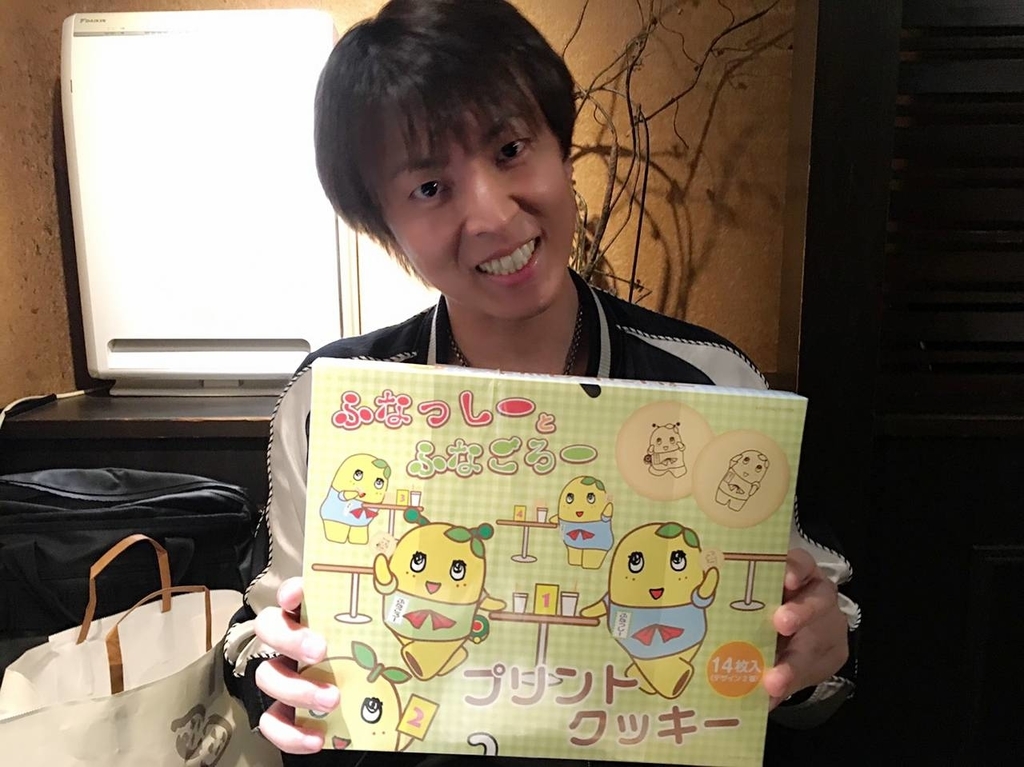 DAIKIN
ふなっしーと
ふなごろー
3
4
1
2
14枚入
プリント
クッキー